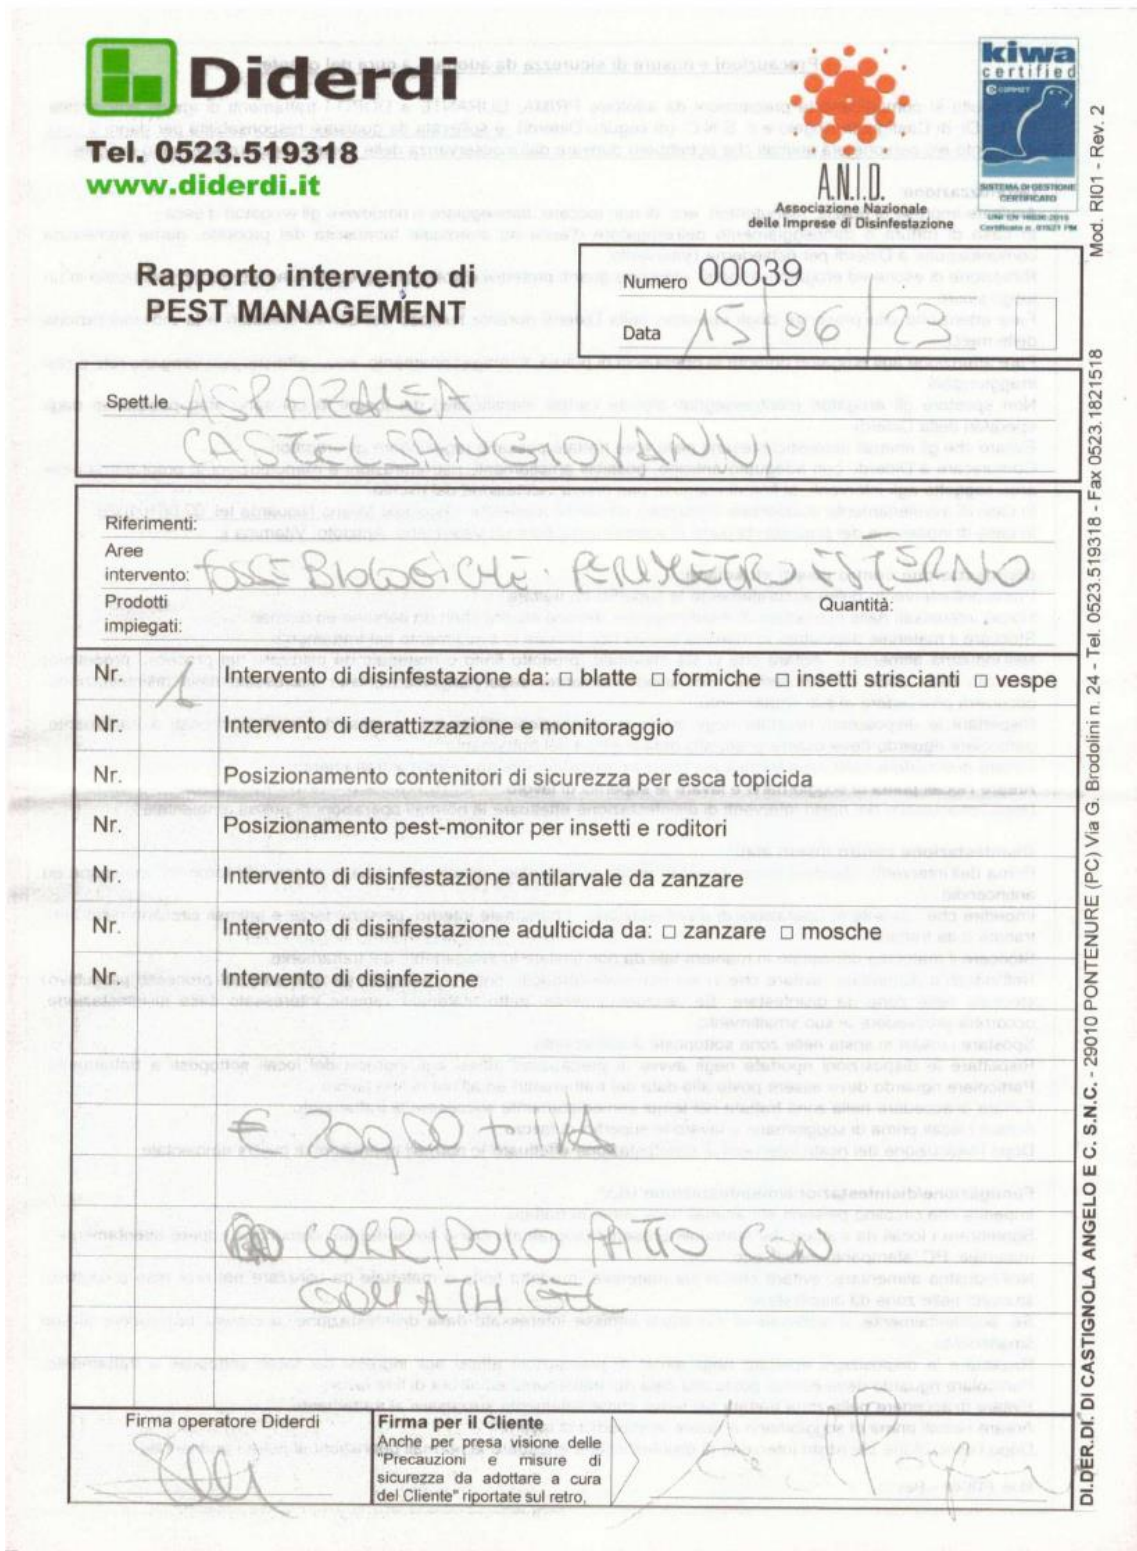 Diderdi
Tel. 0523.519318
www.diderdi.it
A.N.I.D.
Associazione Nazionale
delle Imprese di Disinfestazione
kiwa
certified
CERMET
SISTEMA DI GESTIONE
CERTIFICATO
UNI EN 16636:2015
Mod. RI01 - Rev. 2
Rapporto intervento di
PEST MANAGEMENT
Numero 00039
Data 15/06/23
Spett.le ASP AZALEA
CASTEL SAN GIOVANNI
Riferimenti:
Aree
intervento: FOSSE BIOLOGICHE. PERIMETRO ESTERNO
Prodotti
impiegati:
Quantità:
Nr. 1 Intervento di disinfestazione da: □ blatte □ formiche □ insetti striscianti □ vespe
Nr. Intervento di derattizzazione e monitoraggio
Nr. Posizionamento contenitori di sicurezza per esca topicida
Nr. Posizionamento pest-monitor per insetti e roditori
Nr. Intervento di disinfestazione antilarvale da zanzare
Nr. Intervento di disinfestazione adulticida da: □ zanzare □ mosche
Nr. Intervento di disinfezione
€ 200,00 + IVA
CORRIDOIO FATTO CON
GOLIATH GEL
Firma operatore Diderdi
Firma per il Cliente
Anche per presa visione delle
"Precauzioni e misure di
sicurezza da adottare a cura
del Cliente" riportate sul retro,
DI.DER.DI. DI CASTIGNOLA ANGELO E C. S.N.C. - 29010 PONTENURE (PC) Via G. Brodolini n. 24 - Tel. 0523.519318 - Fax 0523.1821518